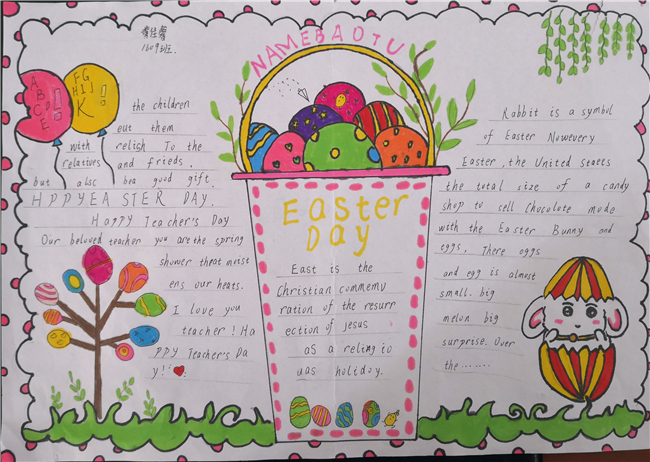 1609班.
NAMEBAOTU
A
B
C D
E
!
FG
HIJ
K!
the children
eut them
with relish To the
relatives and frieds.
but alsc boa good gift.
HPPYEA STER DAY.
Happy Teacher's Day
Our beloved teacher you are the spring
shower threat moist
ens our heats.
I love you
teacher! Ha
ppy Teacher's Da
y!
Easter
Day
East is the
Christian commemv
ration of the resurr
ection of jesus
as a religio
uas holiday.
Rabbit is a symbol
of Easter Nowevery
Easter, the United staets
the total size of a candy
shop to cell Chocolate made
with the Easter Bunny and
eggs, There eggs
and egg is almost
small. big
melon big
surprise. Over
the.......